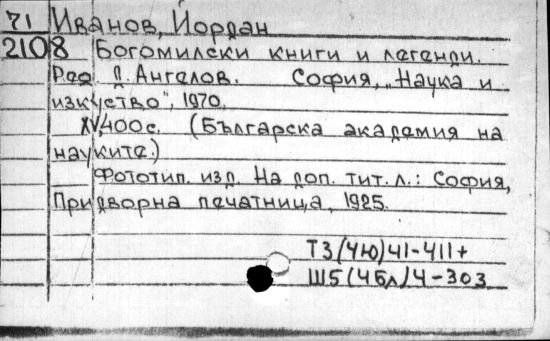 71 Иванов, Йордан
2108 Богомилски книги и легенди.
Ред. Д. Ангелов. София, „Наука и
изкуство", 1970.
XV,400с. (Българска академия на
науките.)
Фототип. изд. На доп. тит. л.: София,
Придворна печатница, 1925.
Т3(4Ю)41-411+
Ш5(4Бл)4-303